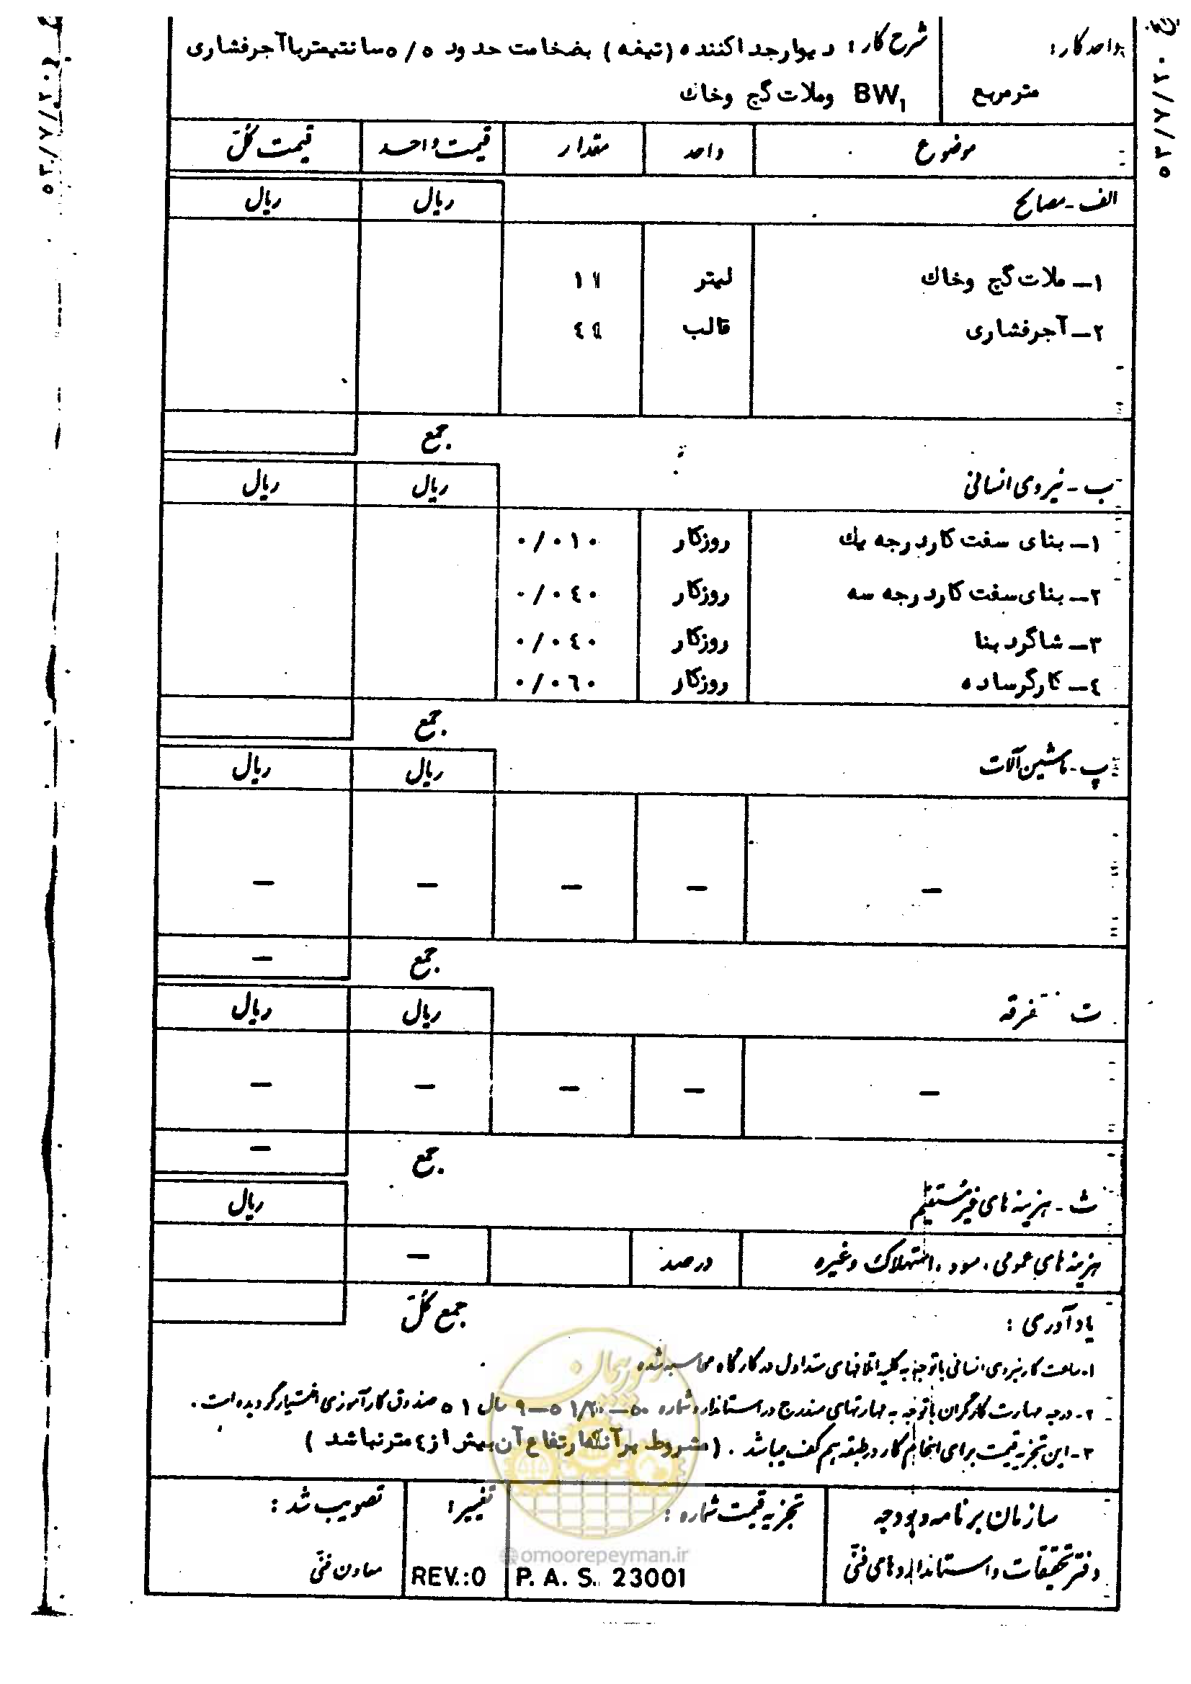 واحد کار:
متر مربع
شرح کار: دیوار جداکننده (تیغه) بضخامت حدود ۵/۵ سانتیمتر با آجر فشاری
BW1 وملات گچ وخاك
۵۳/۷/۲۰
۵۳/۷/۲۰
موضوع واحد مقدار قیمت واحد قیمت کل
الف - مصالح ریال ریال
۱- ملات گچ وخاك لیتر
۲- آجر فشاری قالب
جمع
ب - نیروی انسانی ریال ریال
۱- بنای سفت کار درجه یك روزکار ۰/۰۱۰
۲- بنای سفت کار درجه سه روزکار ۰/۰٤۰
۳- شاگرد بنا روزکار ۰/۰٤۰
٤- کارگر ساده روزکار ۰/۰٦۰
جمع
پ - ماشین آلات ریال ریال
— — — — —
جمع —
ت متفرقه ریال ریال
— — — — —
جمع —
ث - هزینه های غیر مستقیم ریال
هزینه های عمومی ، سود ، استهلاك وغیره درصد —
جمع کل
یادآوری :
۱- ساعت کار نیروی انسانی با توجه به کلیه اتفاقهای متداول در کارگاه محاسبه شده
۲- درجه مهارت کارگران با توجه به مهارتهای مندرج در استاندارد شماره سال ۵۱ صندوق کارآموزی اختیار گردیده است .
۳- این تجزیه قیمت برای انجام کار در طبقه هم کف میباشد . (مشروط بر آنکه ارتفاع آن بیش از ٤ متر نباشد )
سازمان برنامه و بودجه
دفتر تحقیقات و استانداردهای فنی
تجزیه قیمت شماره :
P. A. S. 23001
تغییر:
REV.:0
تصویب شد :
معاون فنی
امور پیمان
@omoorepeyman.ir